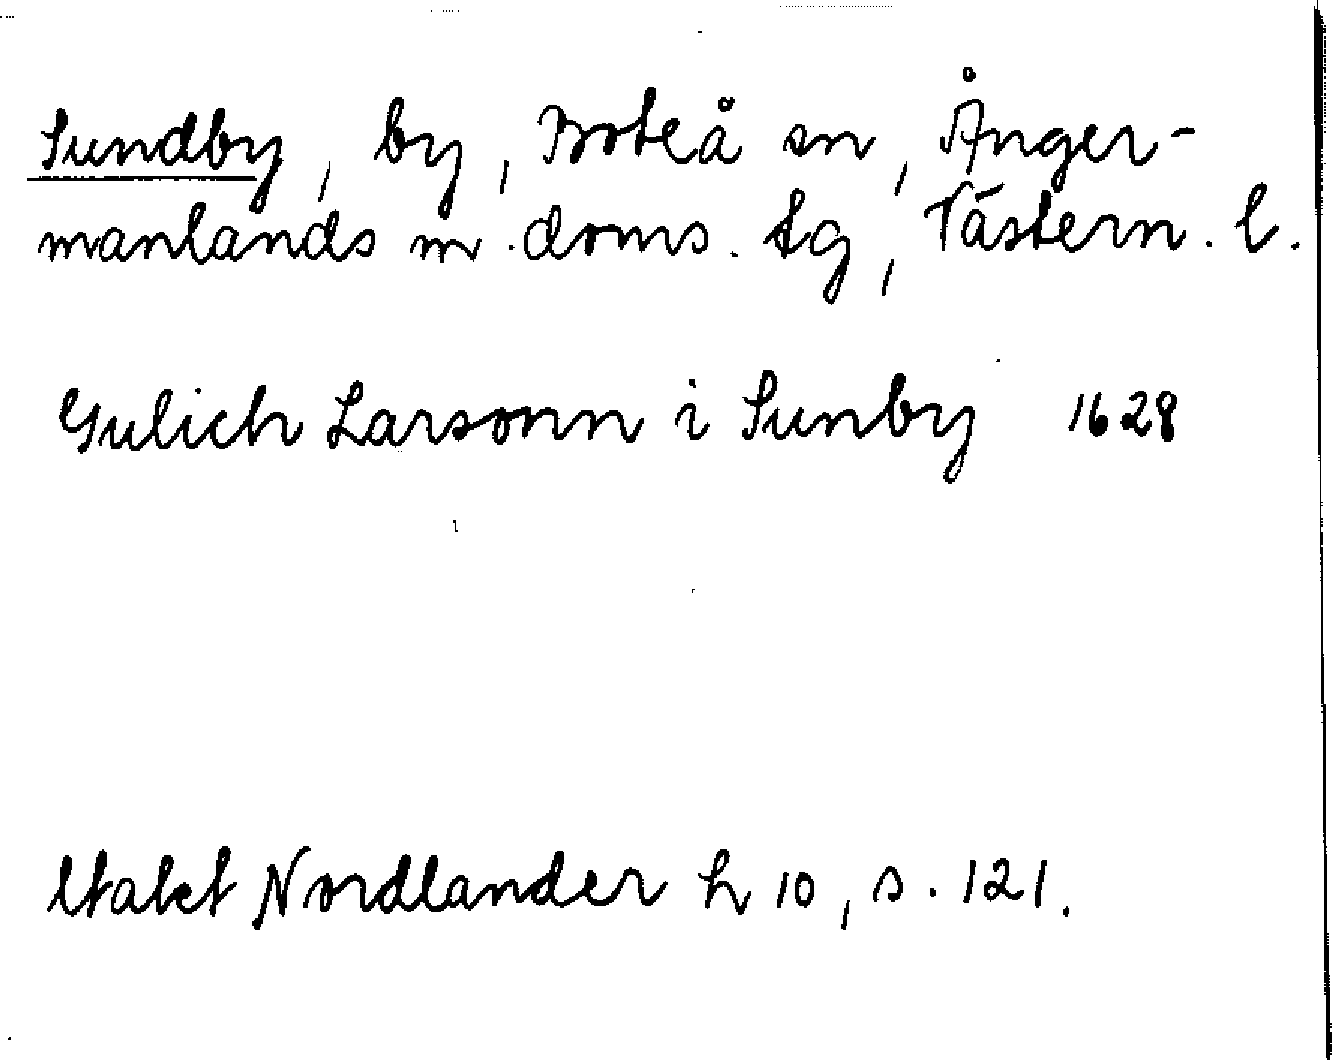 Sundby, by, Boteå sn, Ånger-
manlands m. doms. tg, Västern. l.
Gulich Larsonn i Sunby 1628
Utabst Nordlander h 10, s. 121.